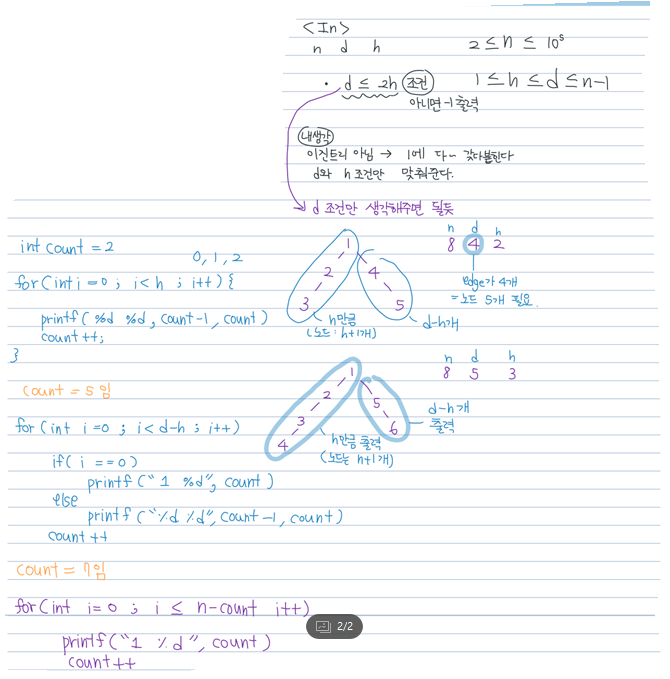 <In>
n d h
2 ≤ n ≤ 10⁵
· d ≤ 2h 조건
1 ≤ h ≤ d ≤ n-1
아니면 -1 출력
내생각
이진트리 아님 → 1에 다~ 갖다붙힌다
d와 h 조건만 맞춰준다.
d 조건만 생각해주면 될듯
int count = 2
0, 1, 2
for(int i=0 ; i<h ; i++){
printf( %d %d, count-1, count)
count++;
}
1
2
3
4
5
h만큼
(노드: h+1개)
d-h개
n d h
8 4 2
edge가 4개
= 노드 5개 필요.
count = 5 임
for(int i=0 ; i<d-h ; i++)
if( i ==0)
printf("1 %d", count)
else
printf("%d %d", count-1, count)
count++
1
2
3
4
5
6
h만큼 출력
(노드는 h+1개)
d-h개
출력
n d h
8 5 3
count = 7임
for(int i=0 ; i ≤ n-count i++)
printf("1 %d", count)
count++
2/2